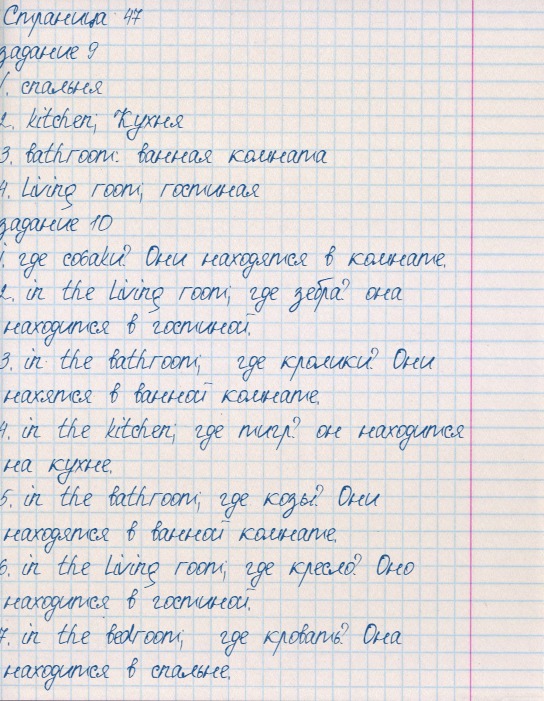 Страница 47
задание 9
1. спальня
2. kitchen; Кухня
3. bathroom: ванная комната
4. Living room; гостиная
задание 10
1. где собаки? Они находятся в комнате.
2. in the Living room; где зебра? она
находится в гостиной.
3. in the bathroom; где кролики? Они
нахятся в ванной комнате.
4. in the kitchen; где тигр? он находится
на кухне.
5. in the bathroom; где козы? Они
находятся в ванной комнате.
6. in the Living room; где кресло? Оно
находится в гостиной.
7. in the bedroom; где кровать? Она
находится в спальне.